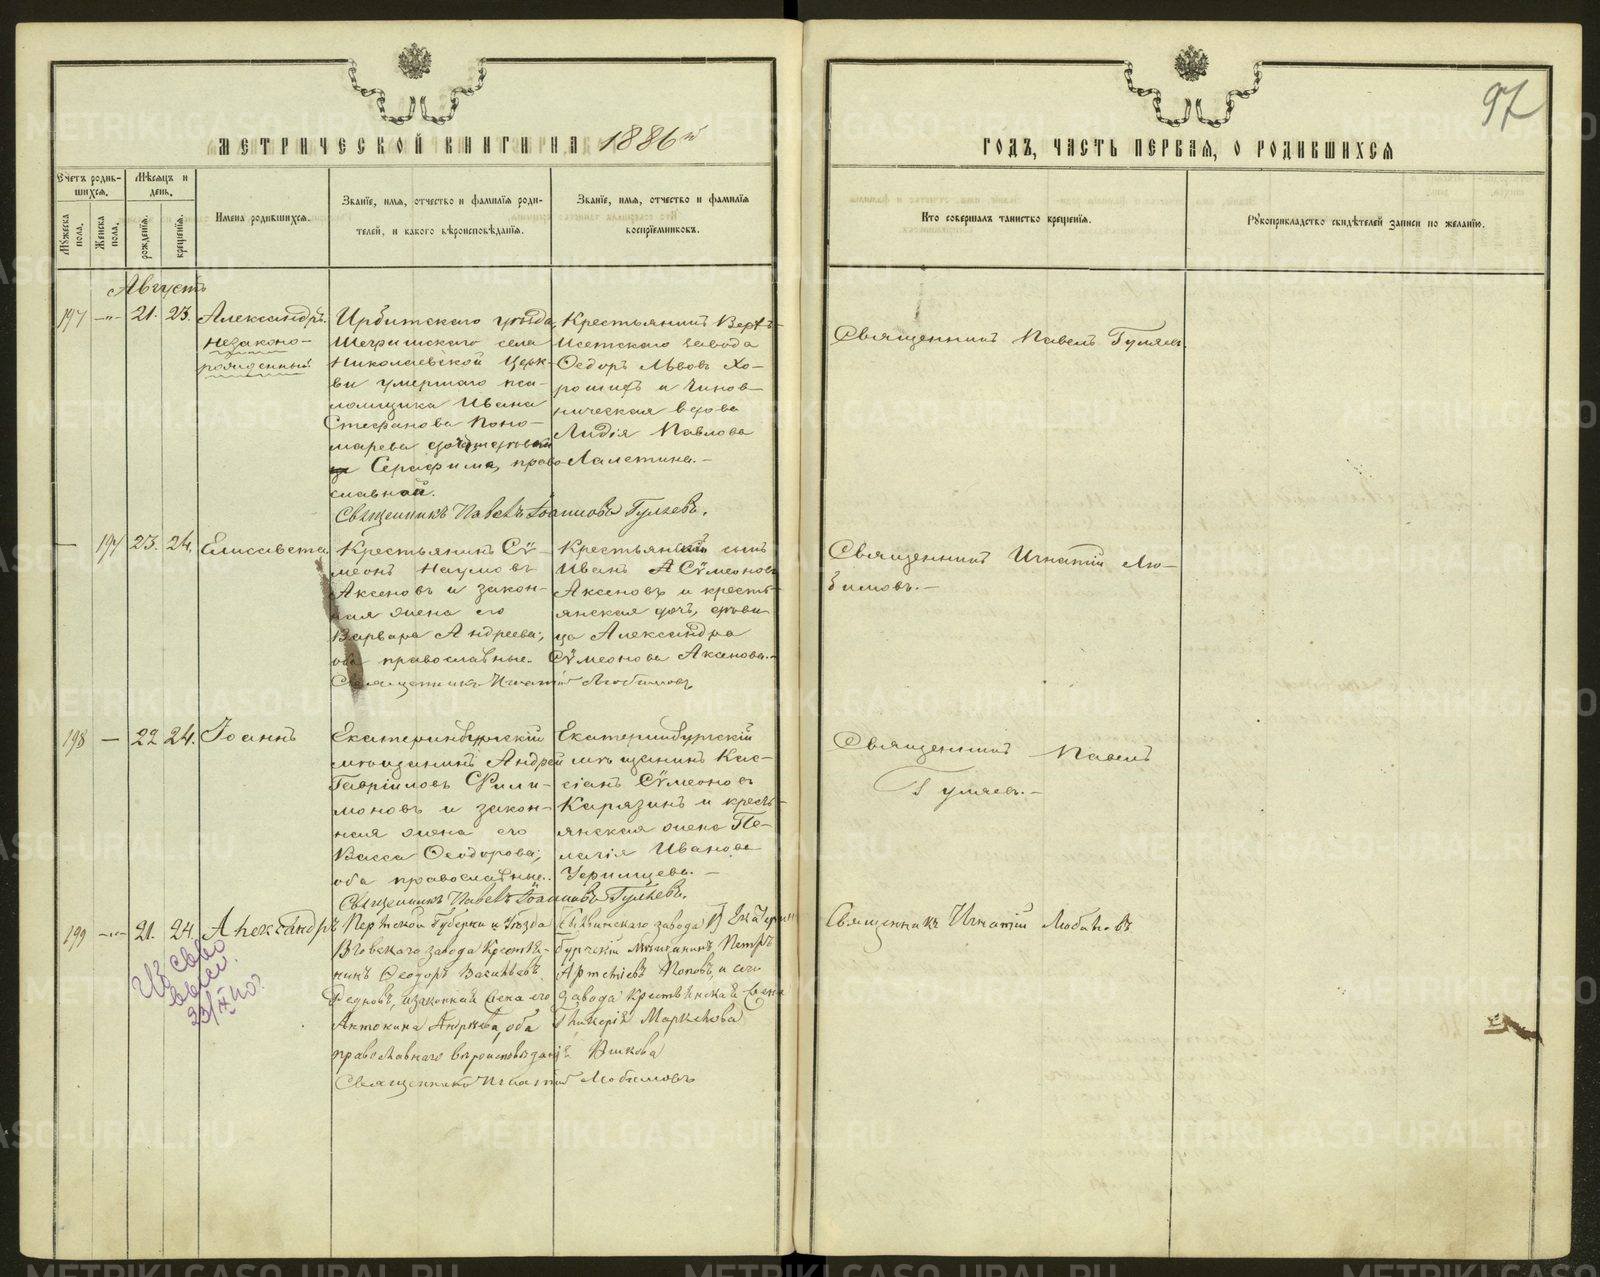 МЕТРИЧЕСКОЙ КНИГИ НА 1886й
ГОДЪ, ЧАСТЬ ПЕРВАЯ, О РОДИВШИХСЯ
97
Счетъ родив-
шихся.
Мужеска пола.
Женска пола.
Мѣсяцъ и
день.
рожденія.
крещенія.
Имена родившихся.
Званіе, имя, отчество и фамилія роди-
телей, и какого вѣроисповѣданія.
Званіе, имя, отчество и фамилія
воспріемниковъ.
Кто совершалъ таинство крещенія.
Рукоприкладство свидѣтелей записи по желанію.
Августъ
197 —„— 21. 23.
Александръ
незаконо-
рожденный
Ирбитскаго уѣзда,
села
Николаевской церк-
ви умершаго пса-
ломщика Ивана
Стефанова Поно-
марева
Серафима, право-
славной.
Священникъ Павелъ Іоанновъ Гуляевъ.
Крестьянинъ Верхъ-
Исетскаго завода
Ѳедоръ Львовъ Хо-
рошихъ и чинов-
ническая вдова
Лидія Павлова
Лалетина.-
Священникъ Павелъ Гуляевъ.
— 197 23. 24.
Елисавета
Крестьянинъ Сѵ-
меонъ Наумовъ
Аксеновъ и закон-
ная жена его
Варвара Андреева;
оба православные.
Священникъ Игнатій Любимовъ
сынъ
Иванъ Сѵмеоновъ
Аксеновъ и кресть-
янская дочь, дѣви-
ца Александра
Сѵмеонова Аксенова.-
Священникъ Игнатій Лю-
бимовъ.-
198 — 22 24.
Іоаннъ
Екатеринбургскій
мѣщанинъ Андрей
Гавріиловъ Фили-
моновъ и закон-
ная жена его
Васса Ѳеодорова;
оба православные.
Священникъ Павелъ Іоанновъ Гуляевъ.
Екатеринбургскій
мѣщанинъ Кас-
сіанъ Сѵмеоновъ
Карязинъ и кресть-
янская жена Пе-
лагія Иванова
Священникъ Павелъ
Гуляевъ.-
199 —„— 21. 24.
Александръ
Пермской Губерніи и Уѣзда
завода Крестья-
нинъ Ѳеодоръ Васильевъ
и законная жена его
Антонина Андреева, оба
православнаго вѣроисповѣданія
Священникъ Игнатій Любимовъ
завода Екатерин-
бургскій Мѣщанинъ Петръ
Артеміевъ Поповъ, и сего
завода Крестьянская жена
Гликерія Маркелова
Священникъ Игнатій Любимовъ
METRIKI.GASO-URAL.RU